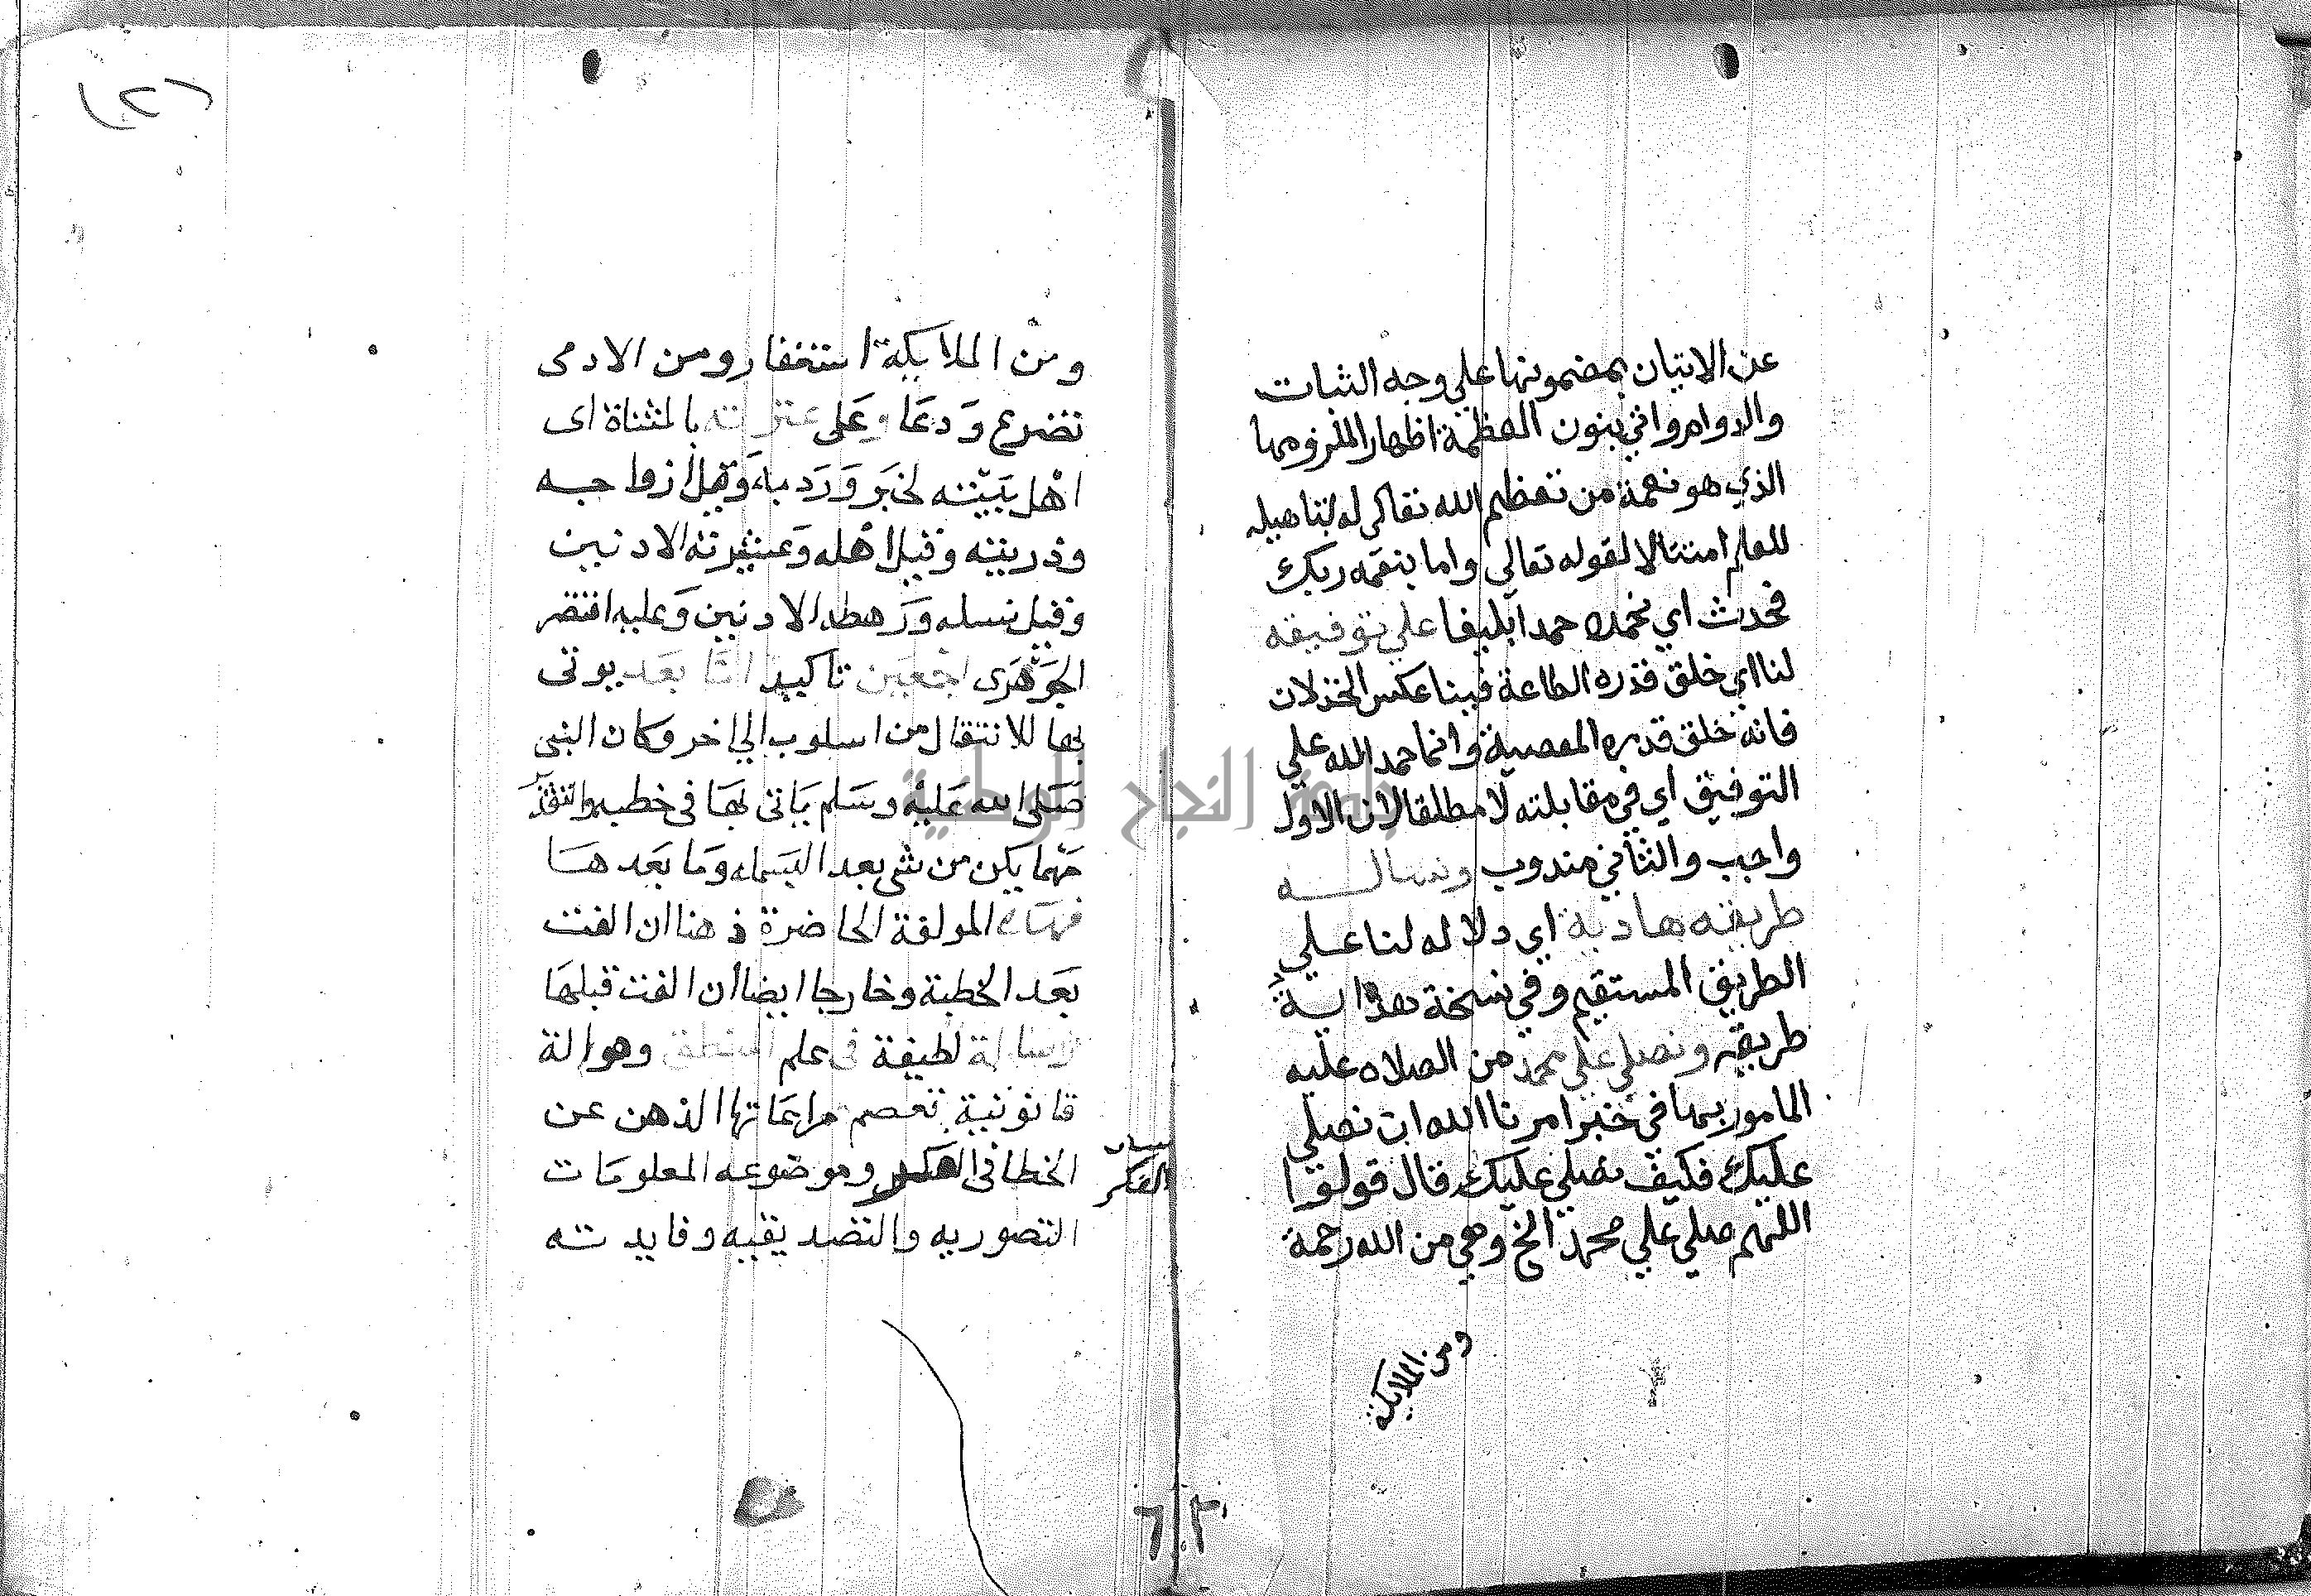 (٢)
عن الاتيان بمضمونها علي وجه الثبات
والدوام واتي بنون العظمة اظهار الملزومها
الذي هو نعمة من تعظيم الله تعالى له بتاهيله
للعلم امتثالا لقوله تعالي واما بنعمه ربك
فحدث اي نحمده حمدا بليغا علي توفيقه
لنا اي خلق قدره الطاعة فينا عكس الخذلان
فانه خلق قدره المعصية وانما حمد الله علي
التوفيق اي في مقابلته لا مطلقا لان الاول
واجب والثاني مندوب ونساله
طريقه هادية اي دلاله لنا علي
الطريق المستقيم وفي نسخة هداية
طريقه ونصلي علي محمد من الصلاه عليه
المامور بها في خبر امرنا الله ان نصلي
عليك فكيف نصلي عليك قال قولوا
اللهم صلي علي محمد الخ وهي من الله رحمة
ومن الملايكة
ومن الملايكة استغفار ومن الادمى
تضرع ودعا وعلى عترته بالمثناة اى
اهل بيته لخبر ورد به وقيل ازواجه
وذريته وقيل اهله وعشيرته الادنين
وقيل نسله ورهطه الادنين وعليه اقتصر
الجوهرى اجمعين تاكيد اما بعد يوتى
بها للانتقال من اسلوب الي اخر وكان النبى
صلى الله عليه وسلم ياتى بها فى خطبه والتقدير
مهما يكن من شى بعد البسمله وما بعدها
فهذه المولفة الحاضرة ذهنا ان الفت
بعد الخطبة وخارجا ايضا ان الفت قبلها
رسالة لطيفة فى علم المنطق وهو الة
قانونية تعصم مراعاتها الذهن عن
الخطا فى الفكر وموضوعه المعلومات
التصوريه والتصديقيه وفايدته
بيان
الفكر
جامعة النجاح الوطنية